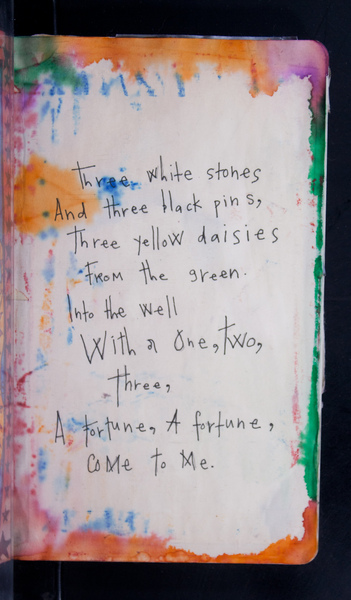 Three white stones
And three black pins,
Three yellow daisies
From the green.
Into the well
With a One, two,
three,
A fortune, A fortune,
Come to Me.